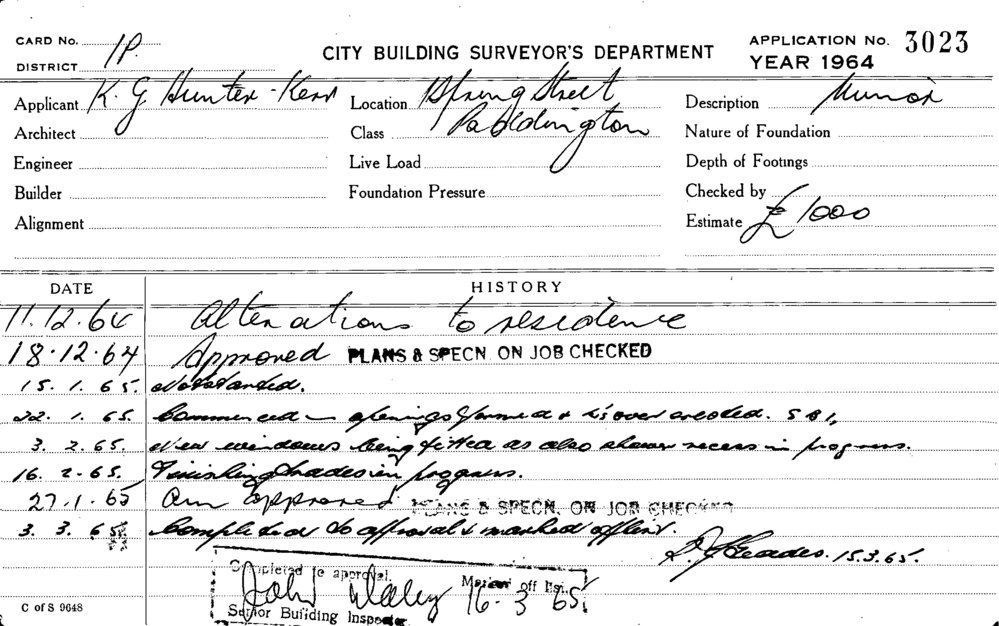 CARD No. 1P.
CITY BUILDING SURVEYOR'S DEPARTMENT
APPLICATION No. 3023
DISTRICT
YEAR 1964
Applicant K. G Hunter-Kerr
Location Spring Street
Description Minor
Architect
Class Paddington
Nature of Foundation
Engineer
Live Load
Depth of Footings
Builder
Foundation Pressure
Checked by
Alignment
Estimate £1000
DATE HISTORY
11.12.64 Alterations to residence
18.12.64 Approved PLANS & SPECN. ON JOB CHECKED
15. 1. 65. Not started.
22. 1. 65. Commenced - openings formed & over erected.
3. 2. 65. New windows being fitted as also shower recess in progress.
16. 2. 65. Finishing trades in progress.
27.1.65 Am approved PLANS & SPECN. ON JOB CHECKED
3. 3. 65. Completed to approval & marked off list.
15.3.65.
Completed to approval. Marked off list.
John Daley 16-3 65.
Senior Building Inspector
C of S 9648